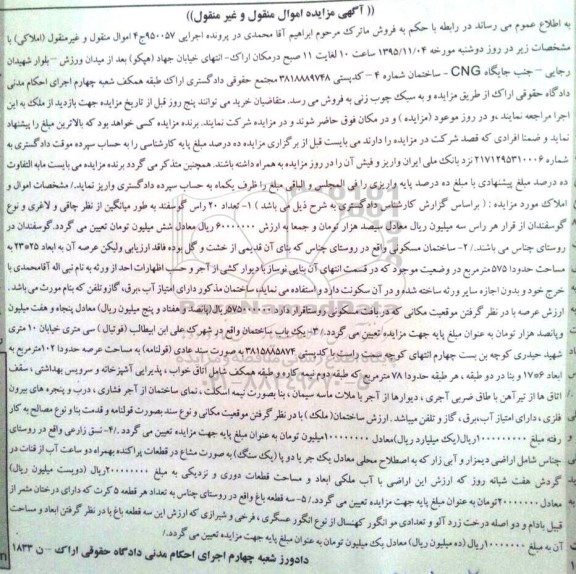 (( آگهی مزایده اموال منقول و غیر منقول))
به اطلاع عموم می رساند در رابطه با حکم به فروش ماترک مرحوم ابراهیم آقا محمدی در پرونده اجرایی ۹۵۰۰۵۷ج۴ اموال منقول و غیرمنقول (املاکی) با
مشخصات زیر در روز دوشنبه مورخه ۱۳۹۵/۱۱/۰۴ ساعت ۱۰ لغایت ۱۱ صبح درمکان اراک- انتهای خیابان جهاد (هپکو) بعد از میدان ورزش – بلوار شهیدان
رجایی – جنب جایگاه CNG - ساختمان شماره ۴ – کدپستی ۳۸۱۸۸۸۹۷۴۸ مجتمع حقوقی دادگستری اراک طبقه همکف شعبه چهارم اجرای احکام مدنی
دادگاه حقوقی اراک از طریق مزایده و به سبک چوب زنی به فروش می رسد. متقاضیان خرید می توانند پنج روز قبل از تاریخ مزایده جهت بازدید از ملک به این
اجرا مراجعه نمایند ،و در روز موعود (مزایده ) و در مکان فوق حاضر شوند و در مزایده شرکت نمایند. برنده مزایده کسی خواهد بود که بالاترین مبلغ را پیشنهاد
نماید و ضمنا افرادی که قصد شرکت در مزایده را دارند می بایست قبل از برگزاری مزایده ده درصد مبلغ پایه کارشناسی را به حساب سپرده موقت دادگستری به
شماره ۲۱۷۱۲۹۵۳۱۰۰۰۶ نزد بانک ملی ایران واریز و فیش آن را در روز مزایده به همراه داشته باشند. همچنین متذکر می گردد برنده مزایده می بایست مابه التفاوت
ده درصد مبلغ پیشنهادی با مبلغ ده درصد پایه واریزی را فی المجلس و الباقی مبلغ را ظرف یکماه به حساب سپرده دادگستری واریز نماید./ مشخصات اموال و
املاک مورد مزایده : ( براساس گزارش کارشناس دادگستری به شرح ذیل می باشد ) ۱- تعداد ۲۰ راس گوسفند به طور میانگین از نظر چاقی و لاغری و نوع
گوسفندان از قرار هر راس سه میلیون ریال معادل سیصد هزار تومان و جمعا به ارزش ۶۰۰۰۰۰۰۰ ریال معادل شش میلیون تومان تعیین می گردد. گوسفندان در
روستای چناس می باشند./ ۲- ساختمان مسکونی واقع در روستای چناس که بنای آن قدیمی از خشت و گل بوده فاقد ارزیابی ولیکن عرصه آن به ابعاد ۲۳*۲۵ به
مساحت حدودا ۵۷۵ مترمربع در وضعیت موجود که در قسمت انتهای آن بنایی نوساز با دیوار کشی از آجر و حسب اظهارات احد از ورثه به نام نبی اله آقامحمدی با
خرج خود و بدون اجازه سایر ورثه ساخته شده و در آن سکونت دارد و استفاده می نماید، ساختمان مذکور دارای امتیاز آب ،برق، گاز و تلفن که بنام مورث می باشد.
ارزش عرصه با در نظر گرفتن موقعیت مکانی که در بافت مسکونی روستا قرار دارد ۵۷۵۰۰۰۰۰۰ریال(پانصد و هفتاد و پنج میلیون ریال) معادل پنجاه و هفت میلیون
وپانصد هزار تومان به عنوان مبلغ پایه جهت مزایده تعیین می گردد./ ۳- یک باب ساختمان واقع در شهرک علی ابن ابیطالب (فوتبال ) سی متری خیابان ۱۰ متری
شهید حیدری کوچه بن بست چهارم انتهای کوچه سمت راست با کدپستی ۳۸۱۵۸۸۵۸۷۴ به صورت سند عادی (قولنامه) به مساحت عرصه حدودا ۱۰۲مترمربع به
ابعاد ۶*۱۷ و بنا در دو طبقه ، هر طبقه حدودا ۷۸ مترمربع که طبقه دوم نیمه کاره و طبقه همکف شامل اتاق خواب ، پذیرایی آشپزخانه و سرویس بهداشتی ، سقف
اتاق ها از تیرآهن با طاق ضربی آجری ، دیوارها از آجر با ملات ماسه سیمان ، بنا بصورت نیمه اسکلت ، نمای ساختمان از آجر فشاری ، درب و پنجره های بیرون
فلزی ، دارای امتیاز آب،برق ، گاز و تلفن میباشد . ارزش ساختمان( ملک ) با در نظر گرفتن موقعیت مکانی و نوع سند بصورت قولنامه و قدمت بنا و نوع مصالح به کار
رفته مبلغ ۱۰۰۰۰۰۰۰۰۰ریال(یک میلیارد ریال) معادل ۱۰۰۰۰۰۰۰۰میلیون تومان به عنوان مبلغ پایه جهت مزایده تعیین می گردد ./۴- نسق زارعی واقع در روستای
چناس شامل اراضی دیمزار و آبی زار که به اصطلاح محلی معادل یک جر یا دو پا (یک سنگ) به صورت مشاع در قطعات پراکنده بهمراه دو ساعت آب از قنات در
گردش هفت شبانه روز که ارزش این اراضی با آب ملکی ابعاد و مساحت قطعات دوری و نزدیکی به مبلغ ۲۰۰۰۰۰۰۰۰ریال (دویست میلیون ریال)
معادل ۲۰۰۰۰۰۰۰تومان به عنوان مبلغ پایه جهت مزایده تعیین می گردد./ ۵- سه قطعه باغ واقع در روستای چناس به تعداد هر قطعه ۵ کرت که دارای درختان مثمر از
قبیل بادام و دو اصله درخت زرد آلو و تعدادی مو انگور کهنسال از نوع انگور عسگری ، فرخی و شیرازی که ارزش این سه قطعه باغ با در نظر گرفتن ابعاد و مساحت
آن به مبلغ ۱۰۰۰۰۰۰۰ ریال (ده میلیون ریال) معادل یک میلیون تومان به عنوان مبلغ پایه جهت مزایده تعیین می گردد./
دادورز شعبه چهارم اجرای احکام مدنی دادگاه حقوقی اراک – ن ۱۸۳۳